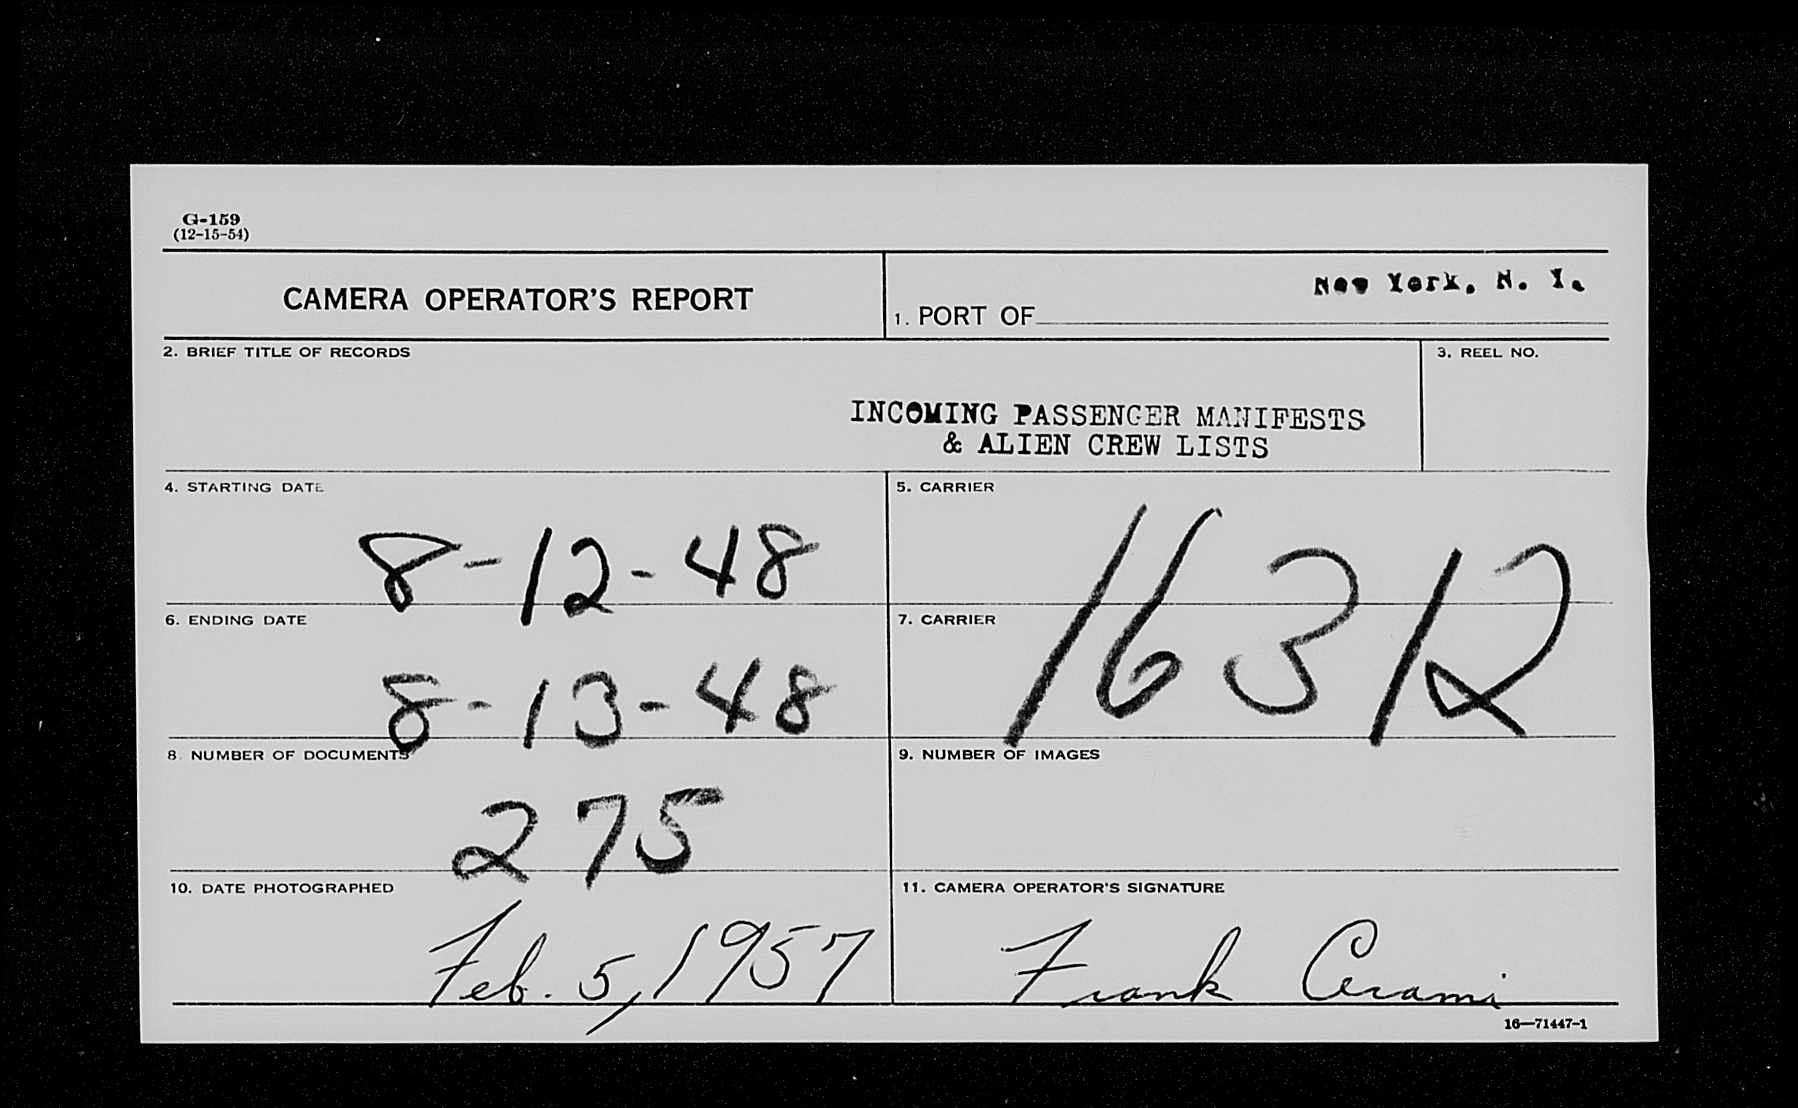 G-159
(12-15-54)
CAMERA OPERATOR'S REPORT
1. PORT OF New York, N. Y.
2. BRIEF TITLE OF RECORDS
3. REEL NO.
INCOMING PASSENGER MANIFESTS
& ALIEN CREW LISTS
4. STARTING DATE
8-12-48
5. CARRIER
16312
6. ENDING DATE
8-13-48
7. CARRIER
8 NUMBER OF DOCUMENTS
275
9. NUMBER OF IMAGES
10. DATE PHOTOGRAPHED
Feb. 5, 1957
11. CAMERA OPERATOR'S SIGNATURE
Frank Cerami
16—71447-1